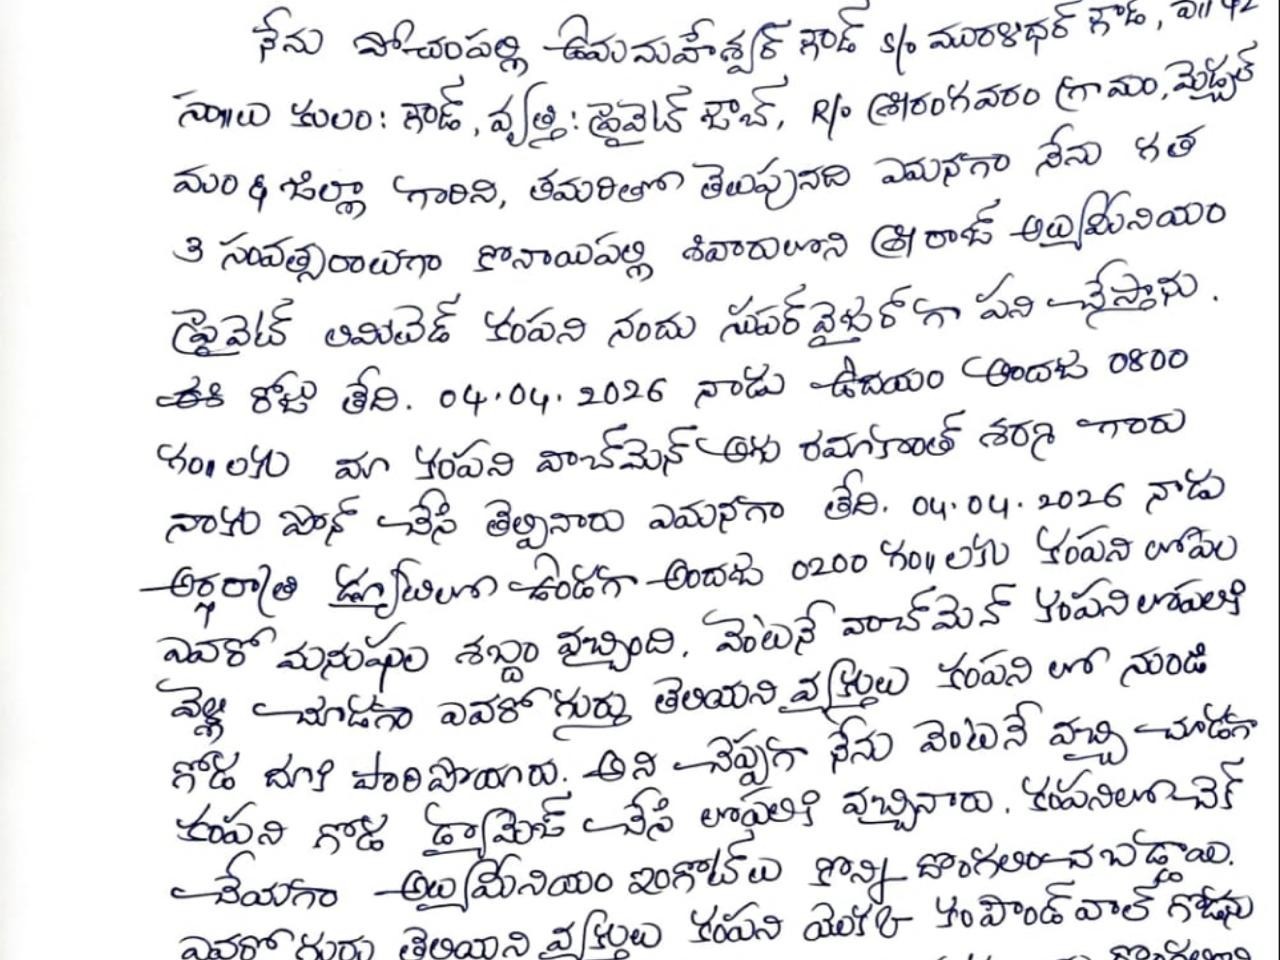 నేను పోచంపల్లి ఉమామహేశ్వర్ గౌడ్ s/o మురళిధర్ గౌడ్, వ॥ 42
సం॥లు కులం: గౌడ్, వృత్తి: ప్రైవైట్ జాబ్, R/o శ్రీరంగవరం గ్రామం, మెడ్చల్
మం & జిల్లా గారిని, తమరితో తెలుపునది ఎమనగా నేను గత
3 సంవత్సరాలుగా కొనాయిపల్లి శివారులోని శ్రీ రాజ్ అల్యుమీనియం
ప్రైవైట్ లిమిటెడ్ కంపని నందు సుపర్ వైజర్ గా పని చేస్తాను.
ఈ రోజు తేది. 04.04.2026 నాడు ఉదయం అందజ 0800
గం॥లకు మా కంపని వాచ్‌మెన్ అగు రమాకాంత్ శర్మ గారు
నాకు ఫోన్ చేసి తెల్పినారు ఎమనగా తేది. 04.04.2026 నాడు
అర్ధరాత్రి డ్యూటిలో ఉండగా అందజ 0200 గం॥లకు కంపని లోపల
ఎవరో మనుషుల శబ్దం వచ్చింది. వెంటనే వాచ్‌మెన్ కంపని లోపలికి
వెళ్లి చూడగా ఎవరో గుర్తు తెలియని వ్యక్తులు కంపని లో నుండి
గోడ దూకి పారిపోయారు. అని చెప్పగా నేను వెంటనే వచ్చి చూడగా
కంపని గోడ డ్యామెజ్ చేసి లోపలికి వచ్చినారు. కంపనిలో చెక్
చేయగా అల్యుమీనియం ఇంగోట్‌లు కొన్ని దొంగలించబడ్డాయి.
ఎవరో గుర్తు తెలియని వ్యక్తులు కంపని యొక్క కంపౌండ్ వాల్ గోడను